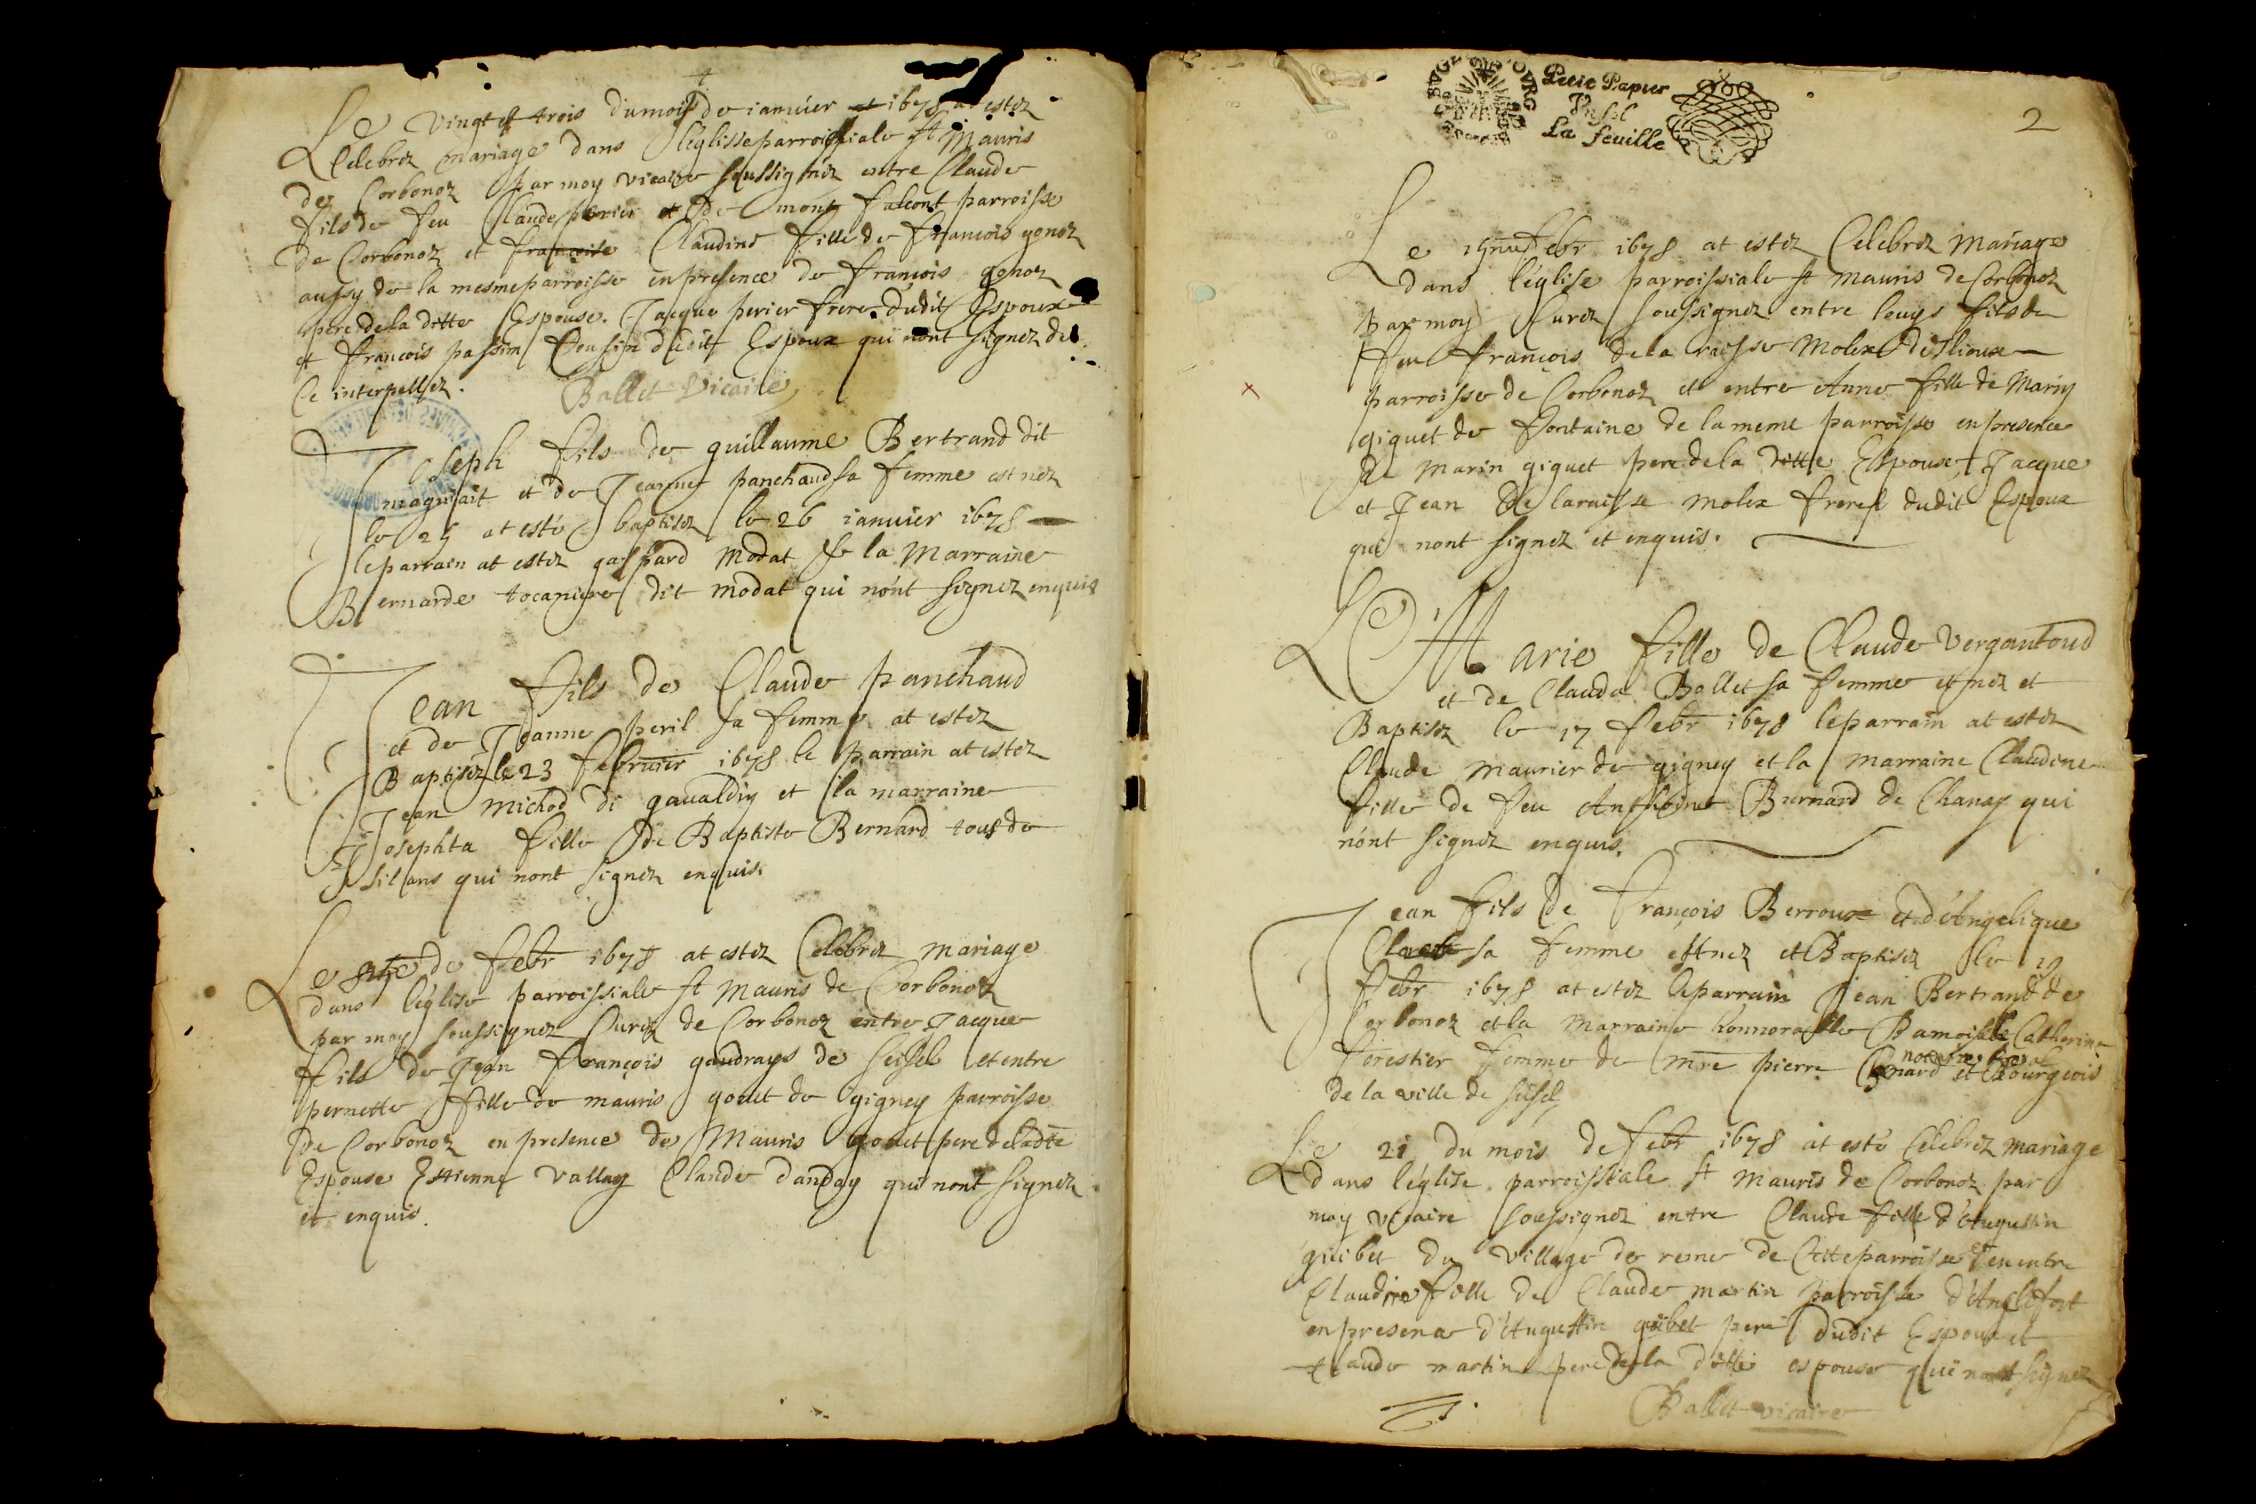 Le vingt et trois du mois de ianuier 1678 at estez
Celebrez mariage dans l'eglisse parroissiale st Mauris
de Corbonoz par moy vicaire soussignéz entre Claude
fils de feu Claude perier de mont falcont parroisse
de Corbonoz et francoise Claudine fille de francois genoz
aussy de la mesme parroisse en presence de françois genoz
pere de la ditte Espouse. Jacque perier frere dudit Espoux
et françois passin Cousin dudit Espoux qui nont signez de
Ce interpellez.
Ballet Vicaire
Joseph fils de guillaume Bertrand dit
magniait et de Jeanne panchaud sa femme est nez
le 25 at esté baptisez le 26 ianuier 1678
le parrain at estez gaspard Modat & la Marraine
Bernarde tocaniere dit modat qui nónt signez enquis
Jean fils de Claude panchaud
et de Jeanne peril sa femme at estez
Baptisez le 23 februier 1678 le parrain at estez
Jean michod di gaualdin et la marraine
Josephta fille de Baptiste Bernard tous de
Silans qui nont signez enquis.
Le de febr 1678 at estez Celebrez mariage
dans l'eglise parroissiale st Mauris de Corbonoz
par moy soussignez Curéz de Corbonoz entre Jacque
fils de Jean François goudrays de Seissel et entre
pernette fille de mauris gouet de gigney parroisse
de Corbonoz en presence de Mauris gouet pere de ladte
Espouse Estienne Vallay Claude danday qui nont signez
et enquis.
Petit Papier
La feuille
2
Le febr 1678 at estez Celebrez Mariage
dans l'église parroissiale st Mauris de Corbonoz
par moy Curez soussignez entre louys fils de
feu françois de la raisse Molex
parroisse de Corbonoz et entre Anne fille de Marin
giguet de fontaine de la meme parroisse en presence
de Marin giguet pere de la ditte Espouse, Jacque
et Jean de laraisse molex freres dudit Espoux
qui nont signez et enquis.
Marie fille de Claude Vergantoud
et de Clauda Ballet sa femme est nez et
Baptisez le 17 febr 1678 le parrain at estez
Claude maurier de gigney et la marraine Claudine
fille de feu Anthoine Burnard de Chanay qui
nónt signez enquis.
Jean fils de François Berroux et d'Angelique
sa femme est nez et Baptisez le 19
febr 1678 at estez le parrain Jean Bertrand de
Corbonoz et la Marraine honnorable Damoiselle Catherine
forestier femme de mre pierre notaire royal et Bourgeois
de la ville de seisel
Le 21 du mois de febr 1678 at esté Celebrez mariage
dans l'église parroissiale st Mauris de Corbonoz par
moy vicaire soussignez entre Claude fils d'Augustin
guibet du village de reme de Cette parroisse et entre
Claudine fille de Claude martin parroisse d'Anglefort
en presence d'Augustin guibet pere dudit Espoux et
Claude martin pere de la ditte espouse qui nont signez
Ballet vicaire